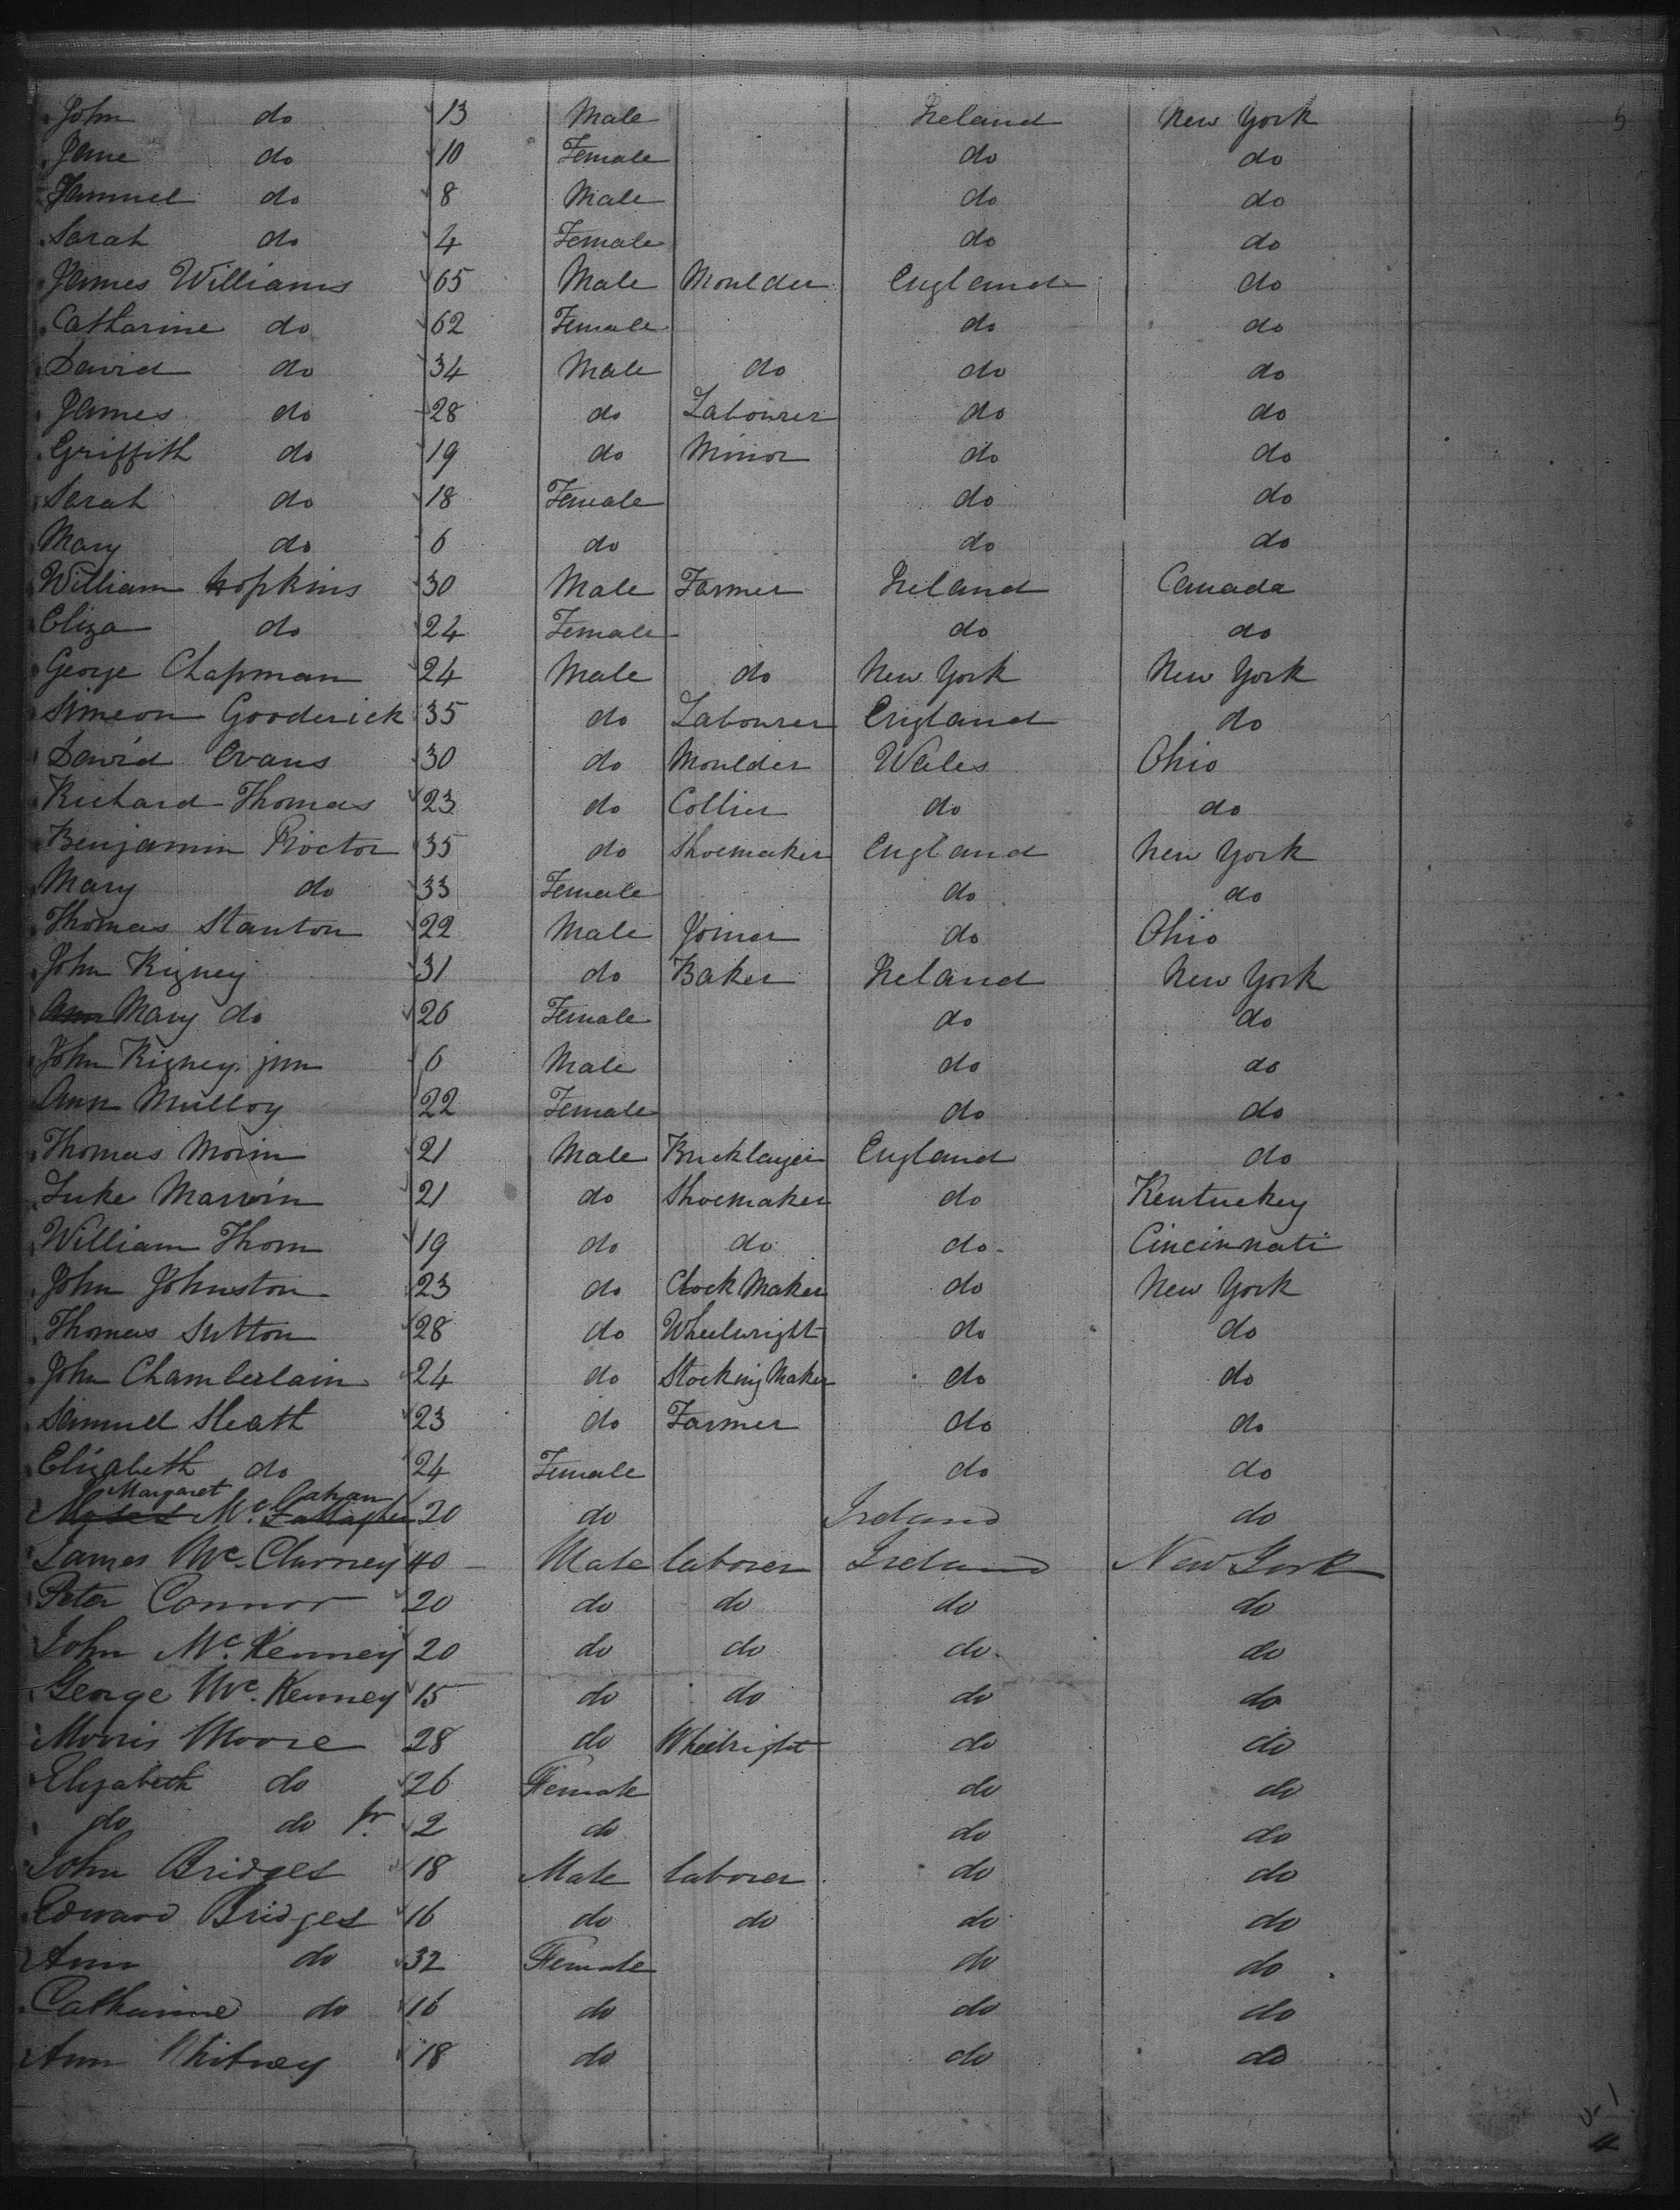 John do 13 Male Ireland New York
Jane do 10 Female do do
Samuel do 8 Male do do
Sarah do 4 Female do do
James Williams 65 Male Moulder England do
Catharine do 62 Female do do
David do 34 Male do do do
James do 28 do Labourer do do
Griffith do 19 do Minor do do
Sarah do 18 Female do do
Mary do 6 do do do
William Hopkins 30 Male Farmer Ireland Canada
Eliza do 24 Female do do
George Chapman 24 Male do New York New York
Simeon Gooderick 35 do Labourer England do
David Evans 30 do Moulder Wales Ohio
Richard Thomas 23 do Collier do do
Benjamin Proctor 35 do Shoemaker England New York
Mary do 33 Female do do
Thomas Stanton 22 Male Joiner do Ohio
John Rigney 31 do Baker Ireland New York
Ann Mary do 26 Female do do
John Rigney jun 6 Male do do
Ann Mulloy 22 Female do do
Thomas Morin 21 Male Bricklayer England do
Luke Marvin 21 do Shoemaker do Kentuckey
William Thorn 19 do do do Cincinnati
John Johnston 23 do Clock Maker do New York
Thomas Sutton 28 do Wheelwright do do
John Chamberlain 24 do Stocking Maker do do
Samuel Sleath 23 do Farmer do do
Elizabeth do 24 Female do do
Margaret Cahan
Mc. 20 do Ireland do
James Mc. Clurney 40 Male laborer Ireland New York
Peter Connor 20 do do do do
John Mc. Kenney 20 do do do do
George Mc. Kenney 15 do do do do
Morris Moore 28 do Wheelright do do
Elizabeth do 26 Female do do
do do Jr. 2 do do do
John Bridges 18 Male laborer do do
Edward Bridges 16 do do do do
Ann do 32 Female do do
Catharine do 16 do do do
Ann Whitney 18 do do do